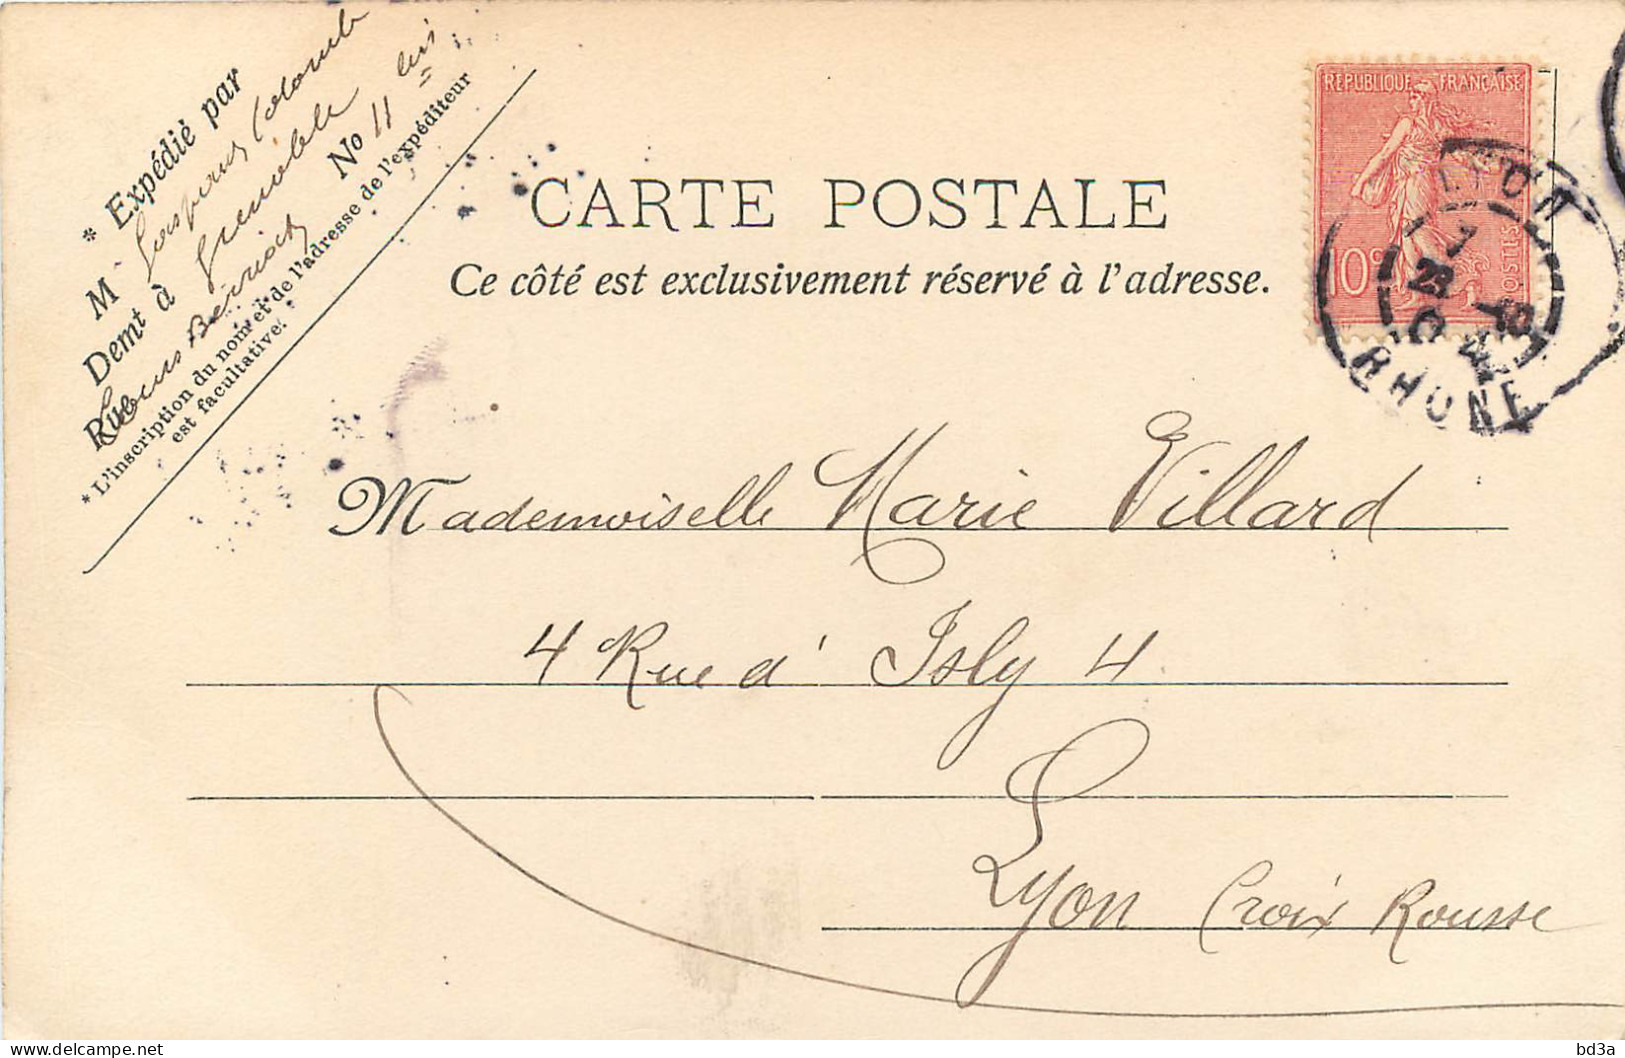 * Expédié par
M Gaspard Colomb
Demt à Grenoble
Rue Cours Berriat No 11 bis
* L'inscription du nom et de l'adresse de l'expéditeur
est facultative.
CARTE POSTALE
Ce côté est exclusivement réservé à l'adresse.
REPUBLIQUE FRANÇAISE
10c
POSTES
LYON
28 -10
04
RHONE
Mademoiselle Marie Villard
4 Rue d' Isly 4
Lyon Croix Rousse
bd3a